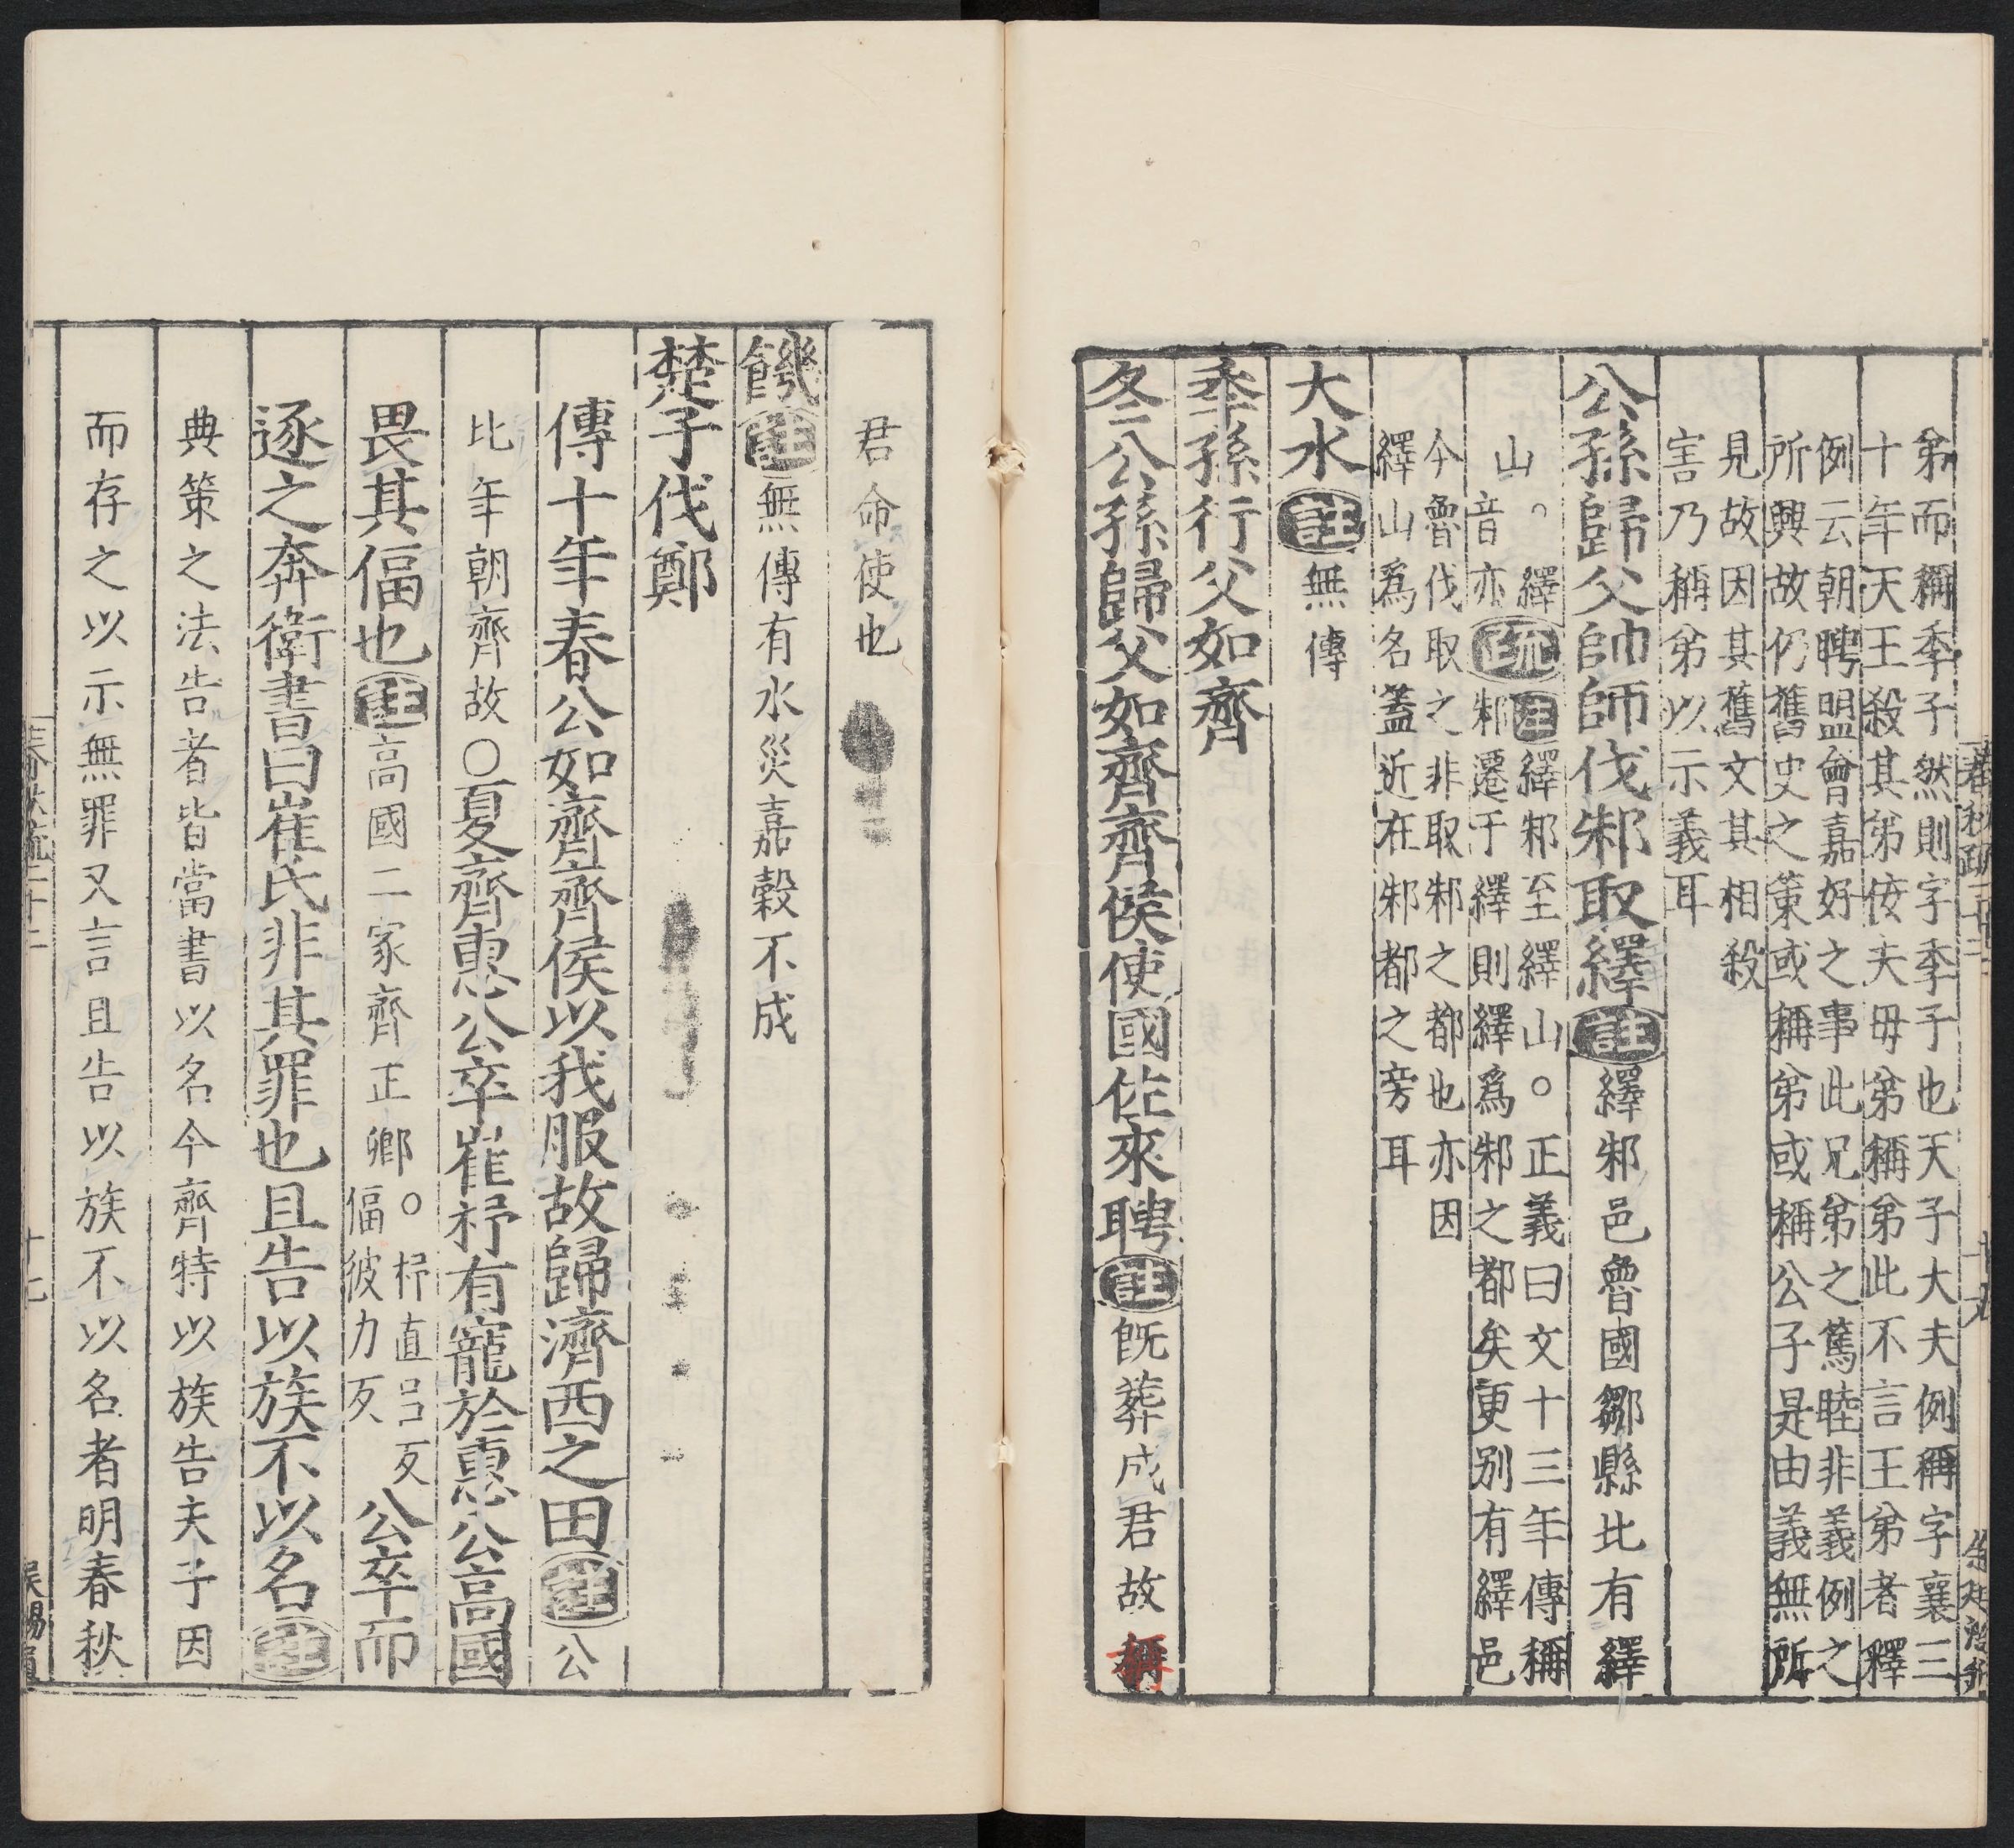 弟而稱季子然則字季子也天子大夫例稱字襄三
十年天王殺其弟佞夫毋弟稱弟此不言王弟者釋
例云朝聘盟會嘉好之事此兄弟之篤睦非義例之
所興故仍舊史之策或稱弟或稱公子是由義無所
見故因其舊文其相殺
害乃稱弟以示義耳
公孫歸父帥師伐邾取繹註繹邾邑魯國鄒縣北有繹
山。繹
音亦
疏註繹邾至繹山。正義曰文十三年傳稱
邾遷于繹則繹爲邾之都矣更别有繹邑
今魯伐取之非取邾之都也亦因
繹山爲名蓋近在邾都之旁耳
大水註無傳
季孫行父如齊
冬公孫歸父如齊齊侯使國佐來聘註既葬成君故稱
君命使也
饑註無傳有水災嘉穀不成
楚子伐鄭
傳十年春公如齊齊侯以我服故歸濟西之田註公
比年朝齊故○夏齊惠公卒崔杼有寵於惠公高國
畏其偪也註高國二家齊正卿。杼直吕反偪彼力反公卒而
逐之奔衛書曰崔氏非其罪也且告以族不以名註
典策之法告者皆當書以名今齊特以族告夫子因
而存之以示無罪又言且告以族不以名者明春秋